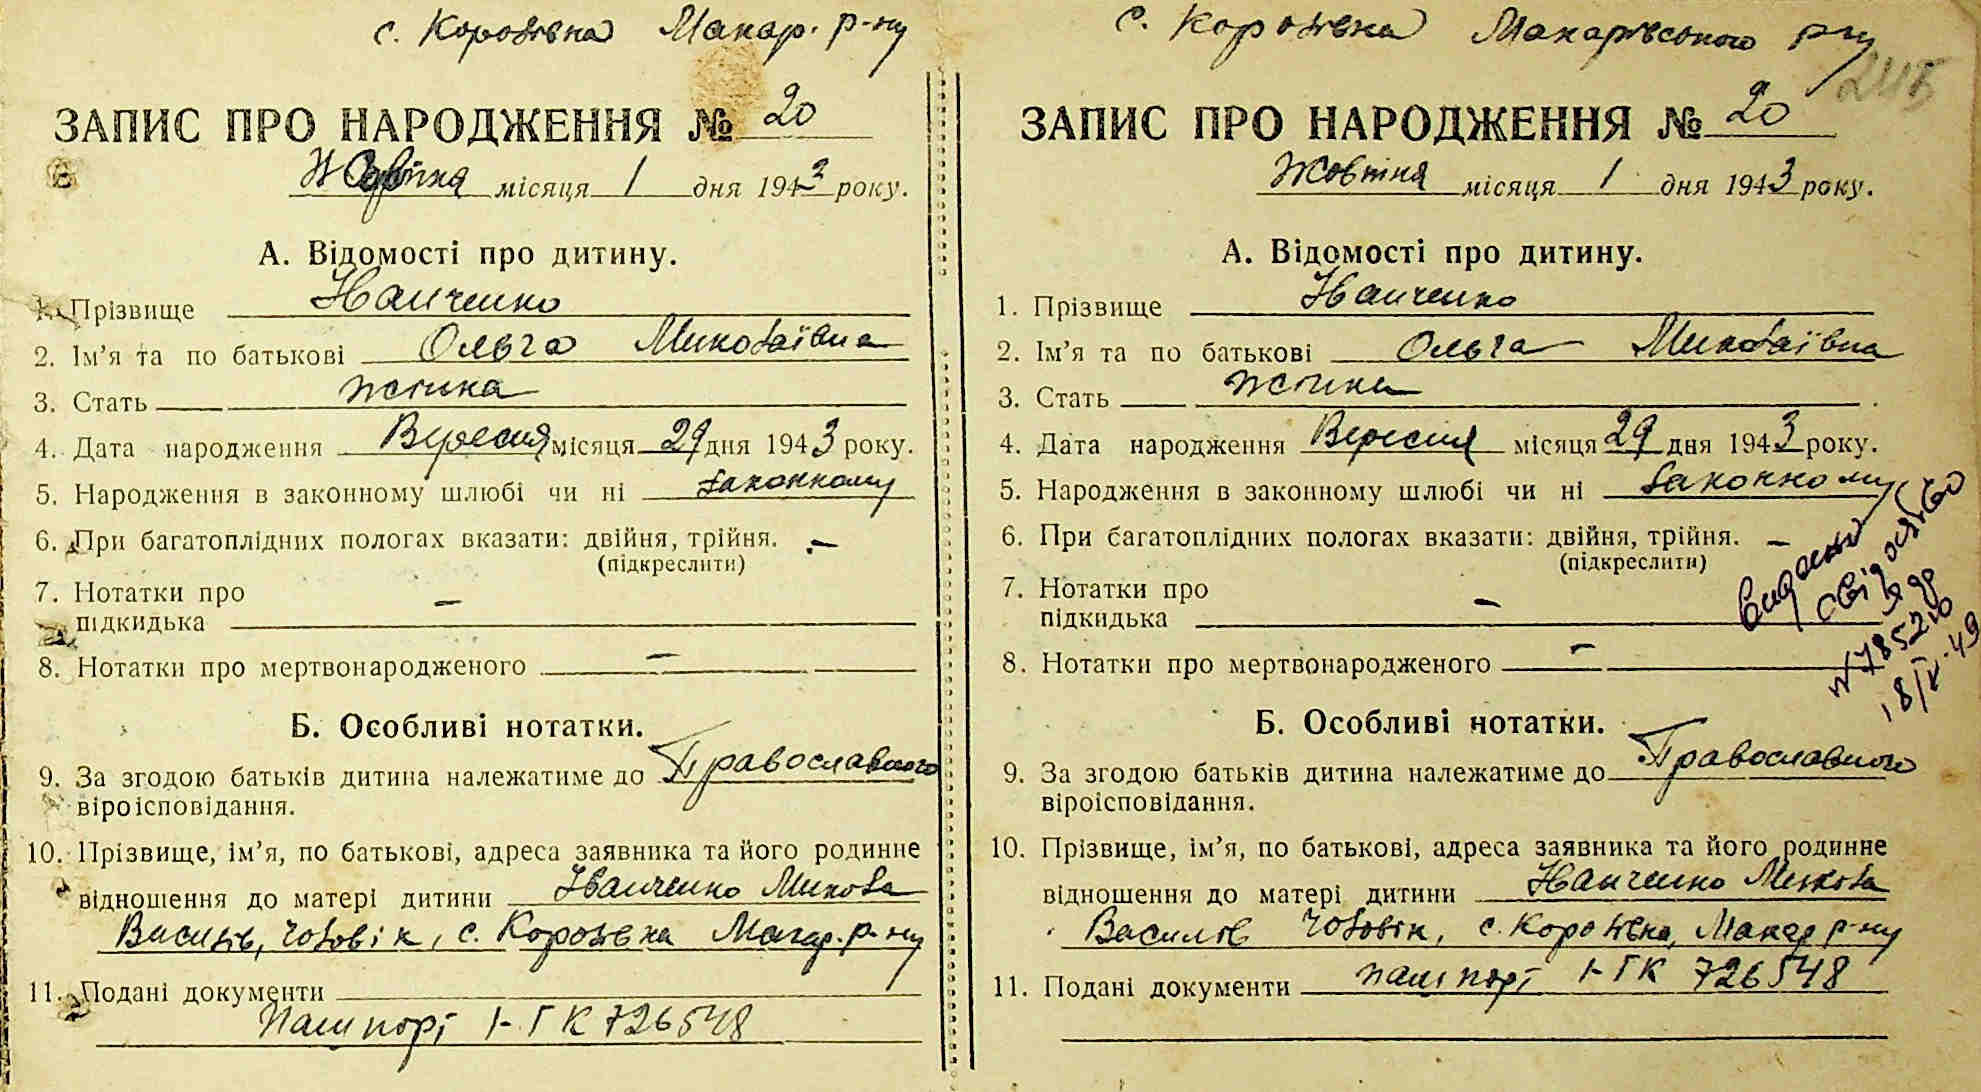 с. Королівка Макар. р-ну
ЗАПИС ПРО НАРОДЖЕННЯ № 20
Жовтня місяця 1 дня 1943 року.
А. Відомості про дитину.
1. Прізвище Іванченко
2. Ім'я та по батькові Ольга Миколаївна
3. Стать жіноча
4. Дата народження Вересня місяця 29 дня 1943 року.
5. Народження в законному шлюбі чи ні законному
6. При багатоплідних пологах вказати: двійня, трійня. –
(підкреслити)
7. Нотатки про
підкидька –
8. Нотатки про мертвонародженого –
Б. Особливі нотатки.
9. За згодою батьків дитина належатиме до Православного
віроісповідання.
10. Прізвище, ім'я, по батькові, адреса заявника та його родинне
відношення до матері дитини Іванченко Микола
Василів, чоловік, с. Королівка Макар. р-ну
11. Подані документи
пашпорт І-ГК 726548
с. Королівка Макарівського р-ну
ЗАПИС ПРО НАРОДЖЕННЯ № 20
Жовтня місяця 1 дня 1943 року.
А. Відомості про дитину.
1. Прізвище Іванченко
2. Ім'я та по батькові Ольга Миколаївна
3. Стать жіноча
4. Дата народження Вересня місяця 29 дня 1943 року.
5. Народження в законному шлюбі чи ні законному
6. При багатоплідних пологах вказати: двійня, трійня. –
(підкреслити)
7. Нотатки про
підкидька –
8. Нотатки про мертвонародженого –
Видано
свідоцтво
№785210
18/IV-49
Б. Особливі нотатки.
9. За згодою батьків дитина належатиме до Православного
віроісповідання.
10. Прізвище, ім'я, по батькові, адреса заявника та його родинне
відношення до матері дитини Іванченко Микола
Василів чоловік, с. Королівка, Макар р-ну
11. Подані документи пашпорт І-ГК 726548